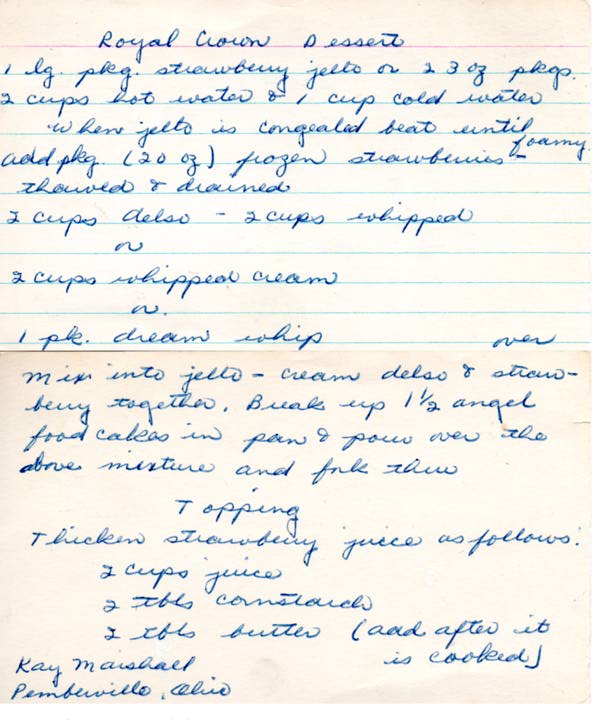 Royal Crown Dessert
1 lg. pkg. strawberry jello or 2 3 oz pkgs.
2 cups hot water & 1 cup cold water
When jello is congealed beat until foamy.
add pkg. (20 oz) frozen strawberries -
thawed & drained
2 cups delso - 2 cups whipped
or
2 cups whipped cream
or.
1 pk. dream whip over
Mix into jello - cream delso & straw-
berry together. Break up 1 1/2 angel
food cakes in pan & pour over the
above mixture and fork thru
Topping
Thicken strawberry juice as follows:
2 cups juice
2 tbls cornstarch
2 tbls butter (add after it
is cooked)
Kay Marshall
Pemberville, Ohio